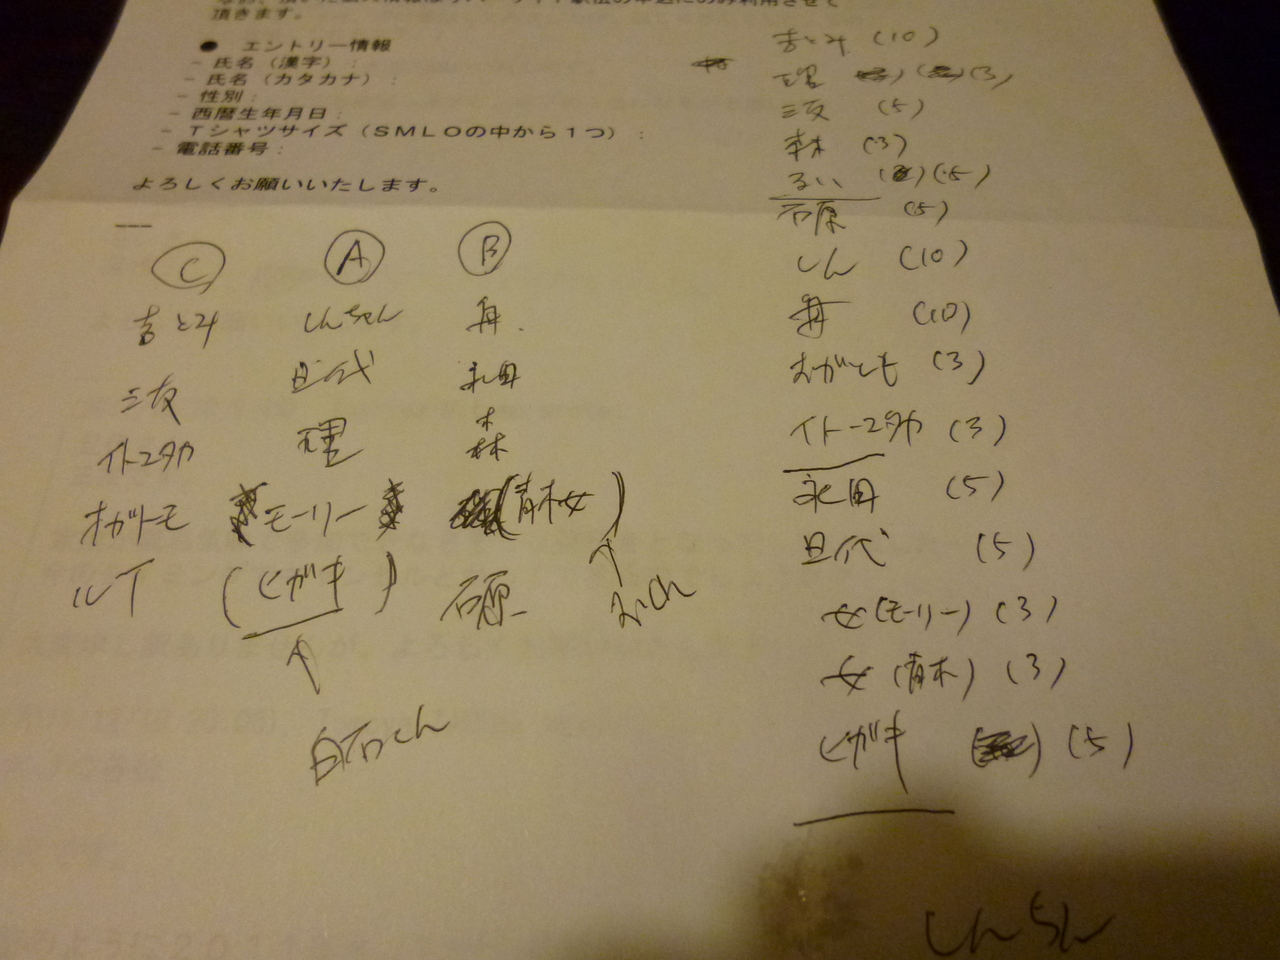 頂きます。
● エントリー情報
- 氏名(漢字):
- 氏名(カタカナ):
- 性別:
- 西暦生年月日:
- Tシャツサイズ(SMLOの中から1つ):
- 電話番号:
よろしくお願いいたします。
C A B
吉とみ しんちゃん 舟
三友 田代 永田
イトーユタカ 理 森
オガトーモ モーリー (青木女)
ルイ (ヒガキ) 石原
白石くん
吉とみ (10)
理 (3)
三友 (5)
森 (3)
るい (5)
石原 (5)
しん (10)
舟 (10)
おがとも (3)
イトーユタカ (3)
永田 (5)
田代 (5)
女(モーリー) (3)
女(青木) (3)
ヒガキ (5)